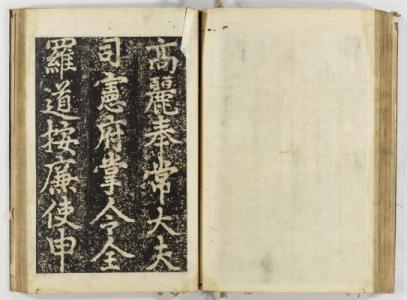 高麗奉常大夫
司憲府掌令全
羅道按廉使申